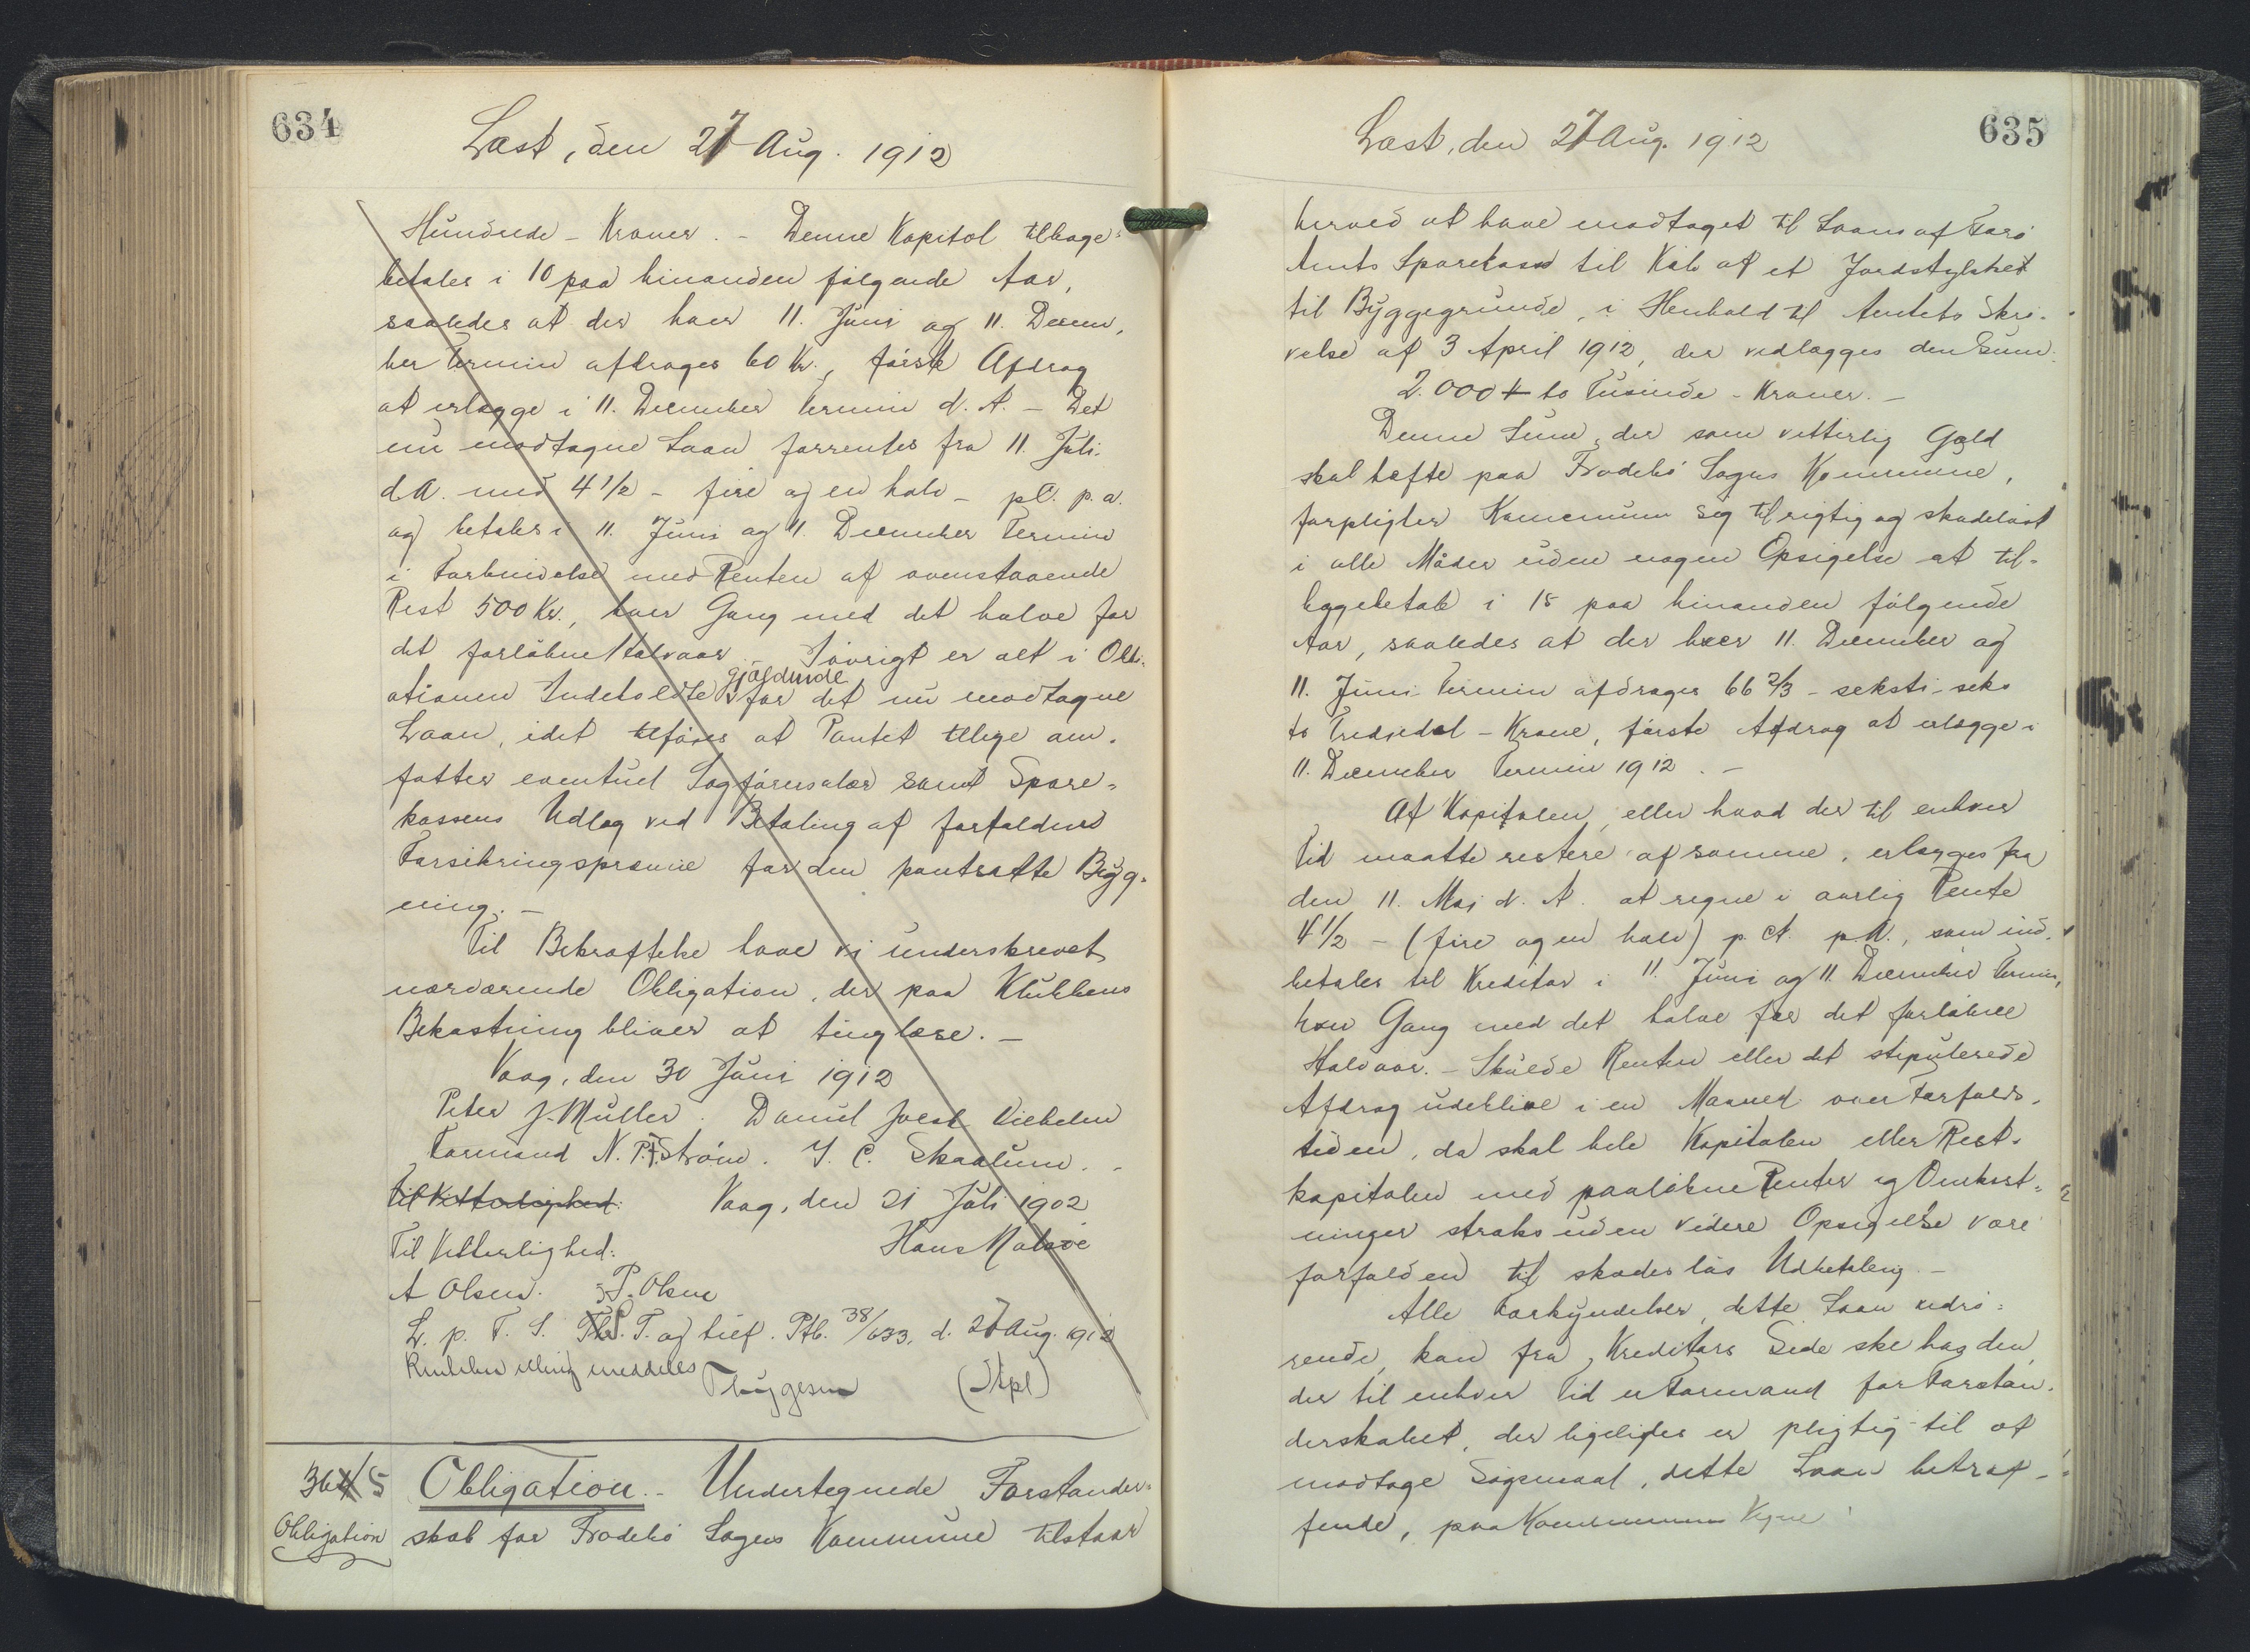 634
Læst, den 27 Aug. 1912
Hundrede - Kroner. - Denne Kapital tilbage-
betales i 10 paa hinanden følgende Aar,
saaledes at der hver 11. Juni og 11. Decem-
ber Termin afdrages 60 Kr., første Afdrag
at erlægge i 11. December Termin d. A. - Det
nu modtagne Laan forrentes fra 11. Juli
d. A. med 4 1/2 - fire og en halv - pC. p. a.
og betales i 11. Juni og 11. December Termin
i Forbindelse med Renten af ovenstaaende
Rest 500 Kr., hver Gang med det halve for
det forløbne Halvaar. Iøvrigt er alt i Obli-
gjældende
ationen Indeholdte for det nu modtagne
Laan, idet tilføies at Pantet tillige om-
fatter eventuel Sagførersalær samt Spare-
kassens Udlag ved Betaling af forfalden
Forsikringspræmie for den pantsatte Byg-
ning. -
Til Bekræftelse have vi underskrevet
nærværende Obligation, der paa Klubbens
Bekostning bliver at tinglæse. -
Vaag, den 30 Juni 1912
Peter J. Müller. Daniel Joest Vilhelm
Formand N. P. F. Strøm. J. C. Skaalum. -
Til Vitterlighed: Vaag, den 21 Juli 1902
Til Vitterlighed: Hans Matsoe
A Olsen. P. Olsen
L. p. F. S. T. og tilf. Ptb. 38/633. d. 27 Aug. 1912
meddeles
Thygesen (Stpl)
364/5 Obligation. - Undertegnede Forstander-
Obligation skab for Frodebø Sogns Kommune tilstaar
635
Læst, den 27 Aug. 1912
herved at have modtaget til Laans af Færø
Amts Sparekasse til Køb af et Jordstykke
til Byggegrunde, i Henhold til Amtets Skri-
velse af 3 April 1912, der vedlægges den Sum
2.000 to Tusinde - Kroner. -
Denne Sum, der som vitterlig Gæld
skal hæfte paa Frodebø Sogns Kommune,
forpligter Kommunen sig til rigtig og skadesløst
i alle Måder uden nogen Opsigelse at til-
bagebetale i 15 paa hinanden følgende
Aar, saaledes at der hver 11. December og
11. Juni Termin afdrages 66 2/3 - seksti-seks
to Trediedel - Krone, første Afdrag at erlægge i
11. December Termin 1912. -
Af Kapitalen, eller hvad der til enhver
Tid maatte restere af samme, erlægges fra
den 11. Maj d. A. at regne i aarlig Rente
4 1/2 - (fire og en halv) p. Ct. p. A., som ind-
betales til Kreditor i 11. Juni og 11. December Termin,
hver Gang med det halve for det forløbne
Halvaar. - Skulde Renten eller det stipulerede
Afdrag udeblive i en Maaned over Forfalds-
tiden, da skal hele Kapitalen eller Rest-
kapitalen med paaløbne Renter og Omkost-
ninger straks uden videre Opsigelse være
forfalden til skadesløs Udbetaling. -
Alle Forkyndelser, dette Laan vedrø-
rende, kan fra Kreditors Side ske hos den,
der til enhver Tid er Formand for Forstan-
derskabet, der ligeledes er pligtig til at
modtage Søgsmaal, dette Laan betræf-
fende, paa Kommunens Vegne